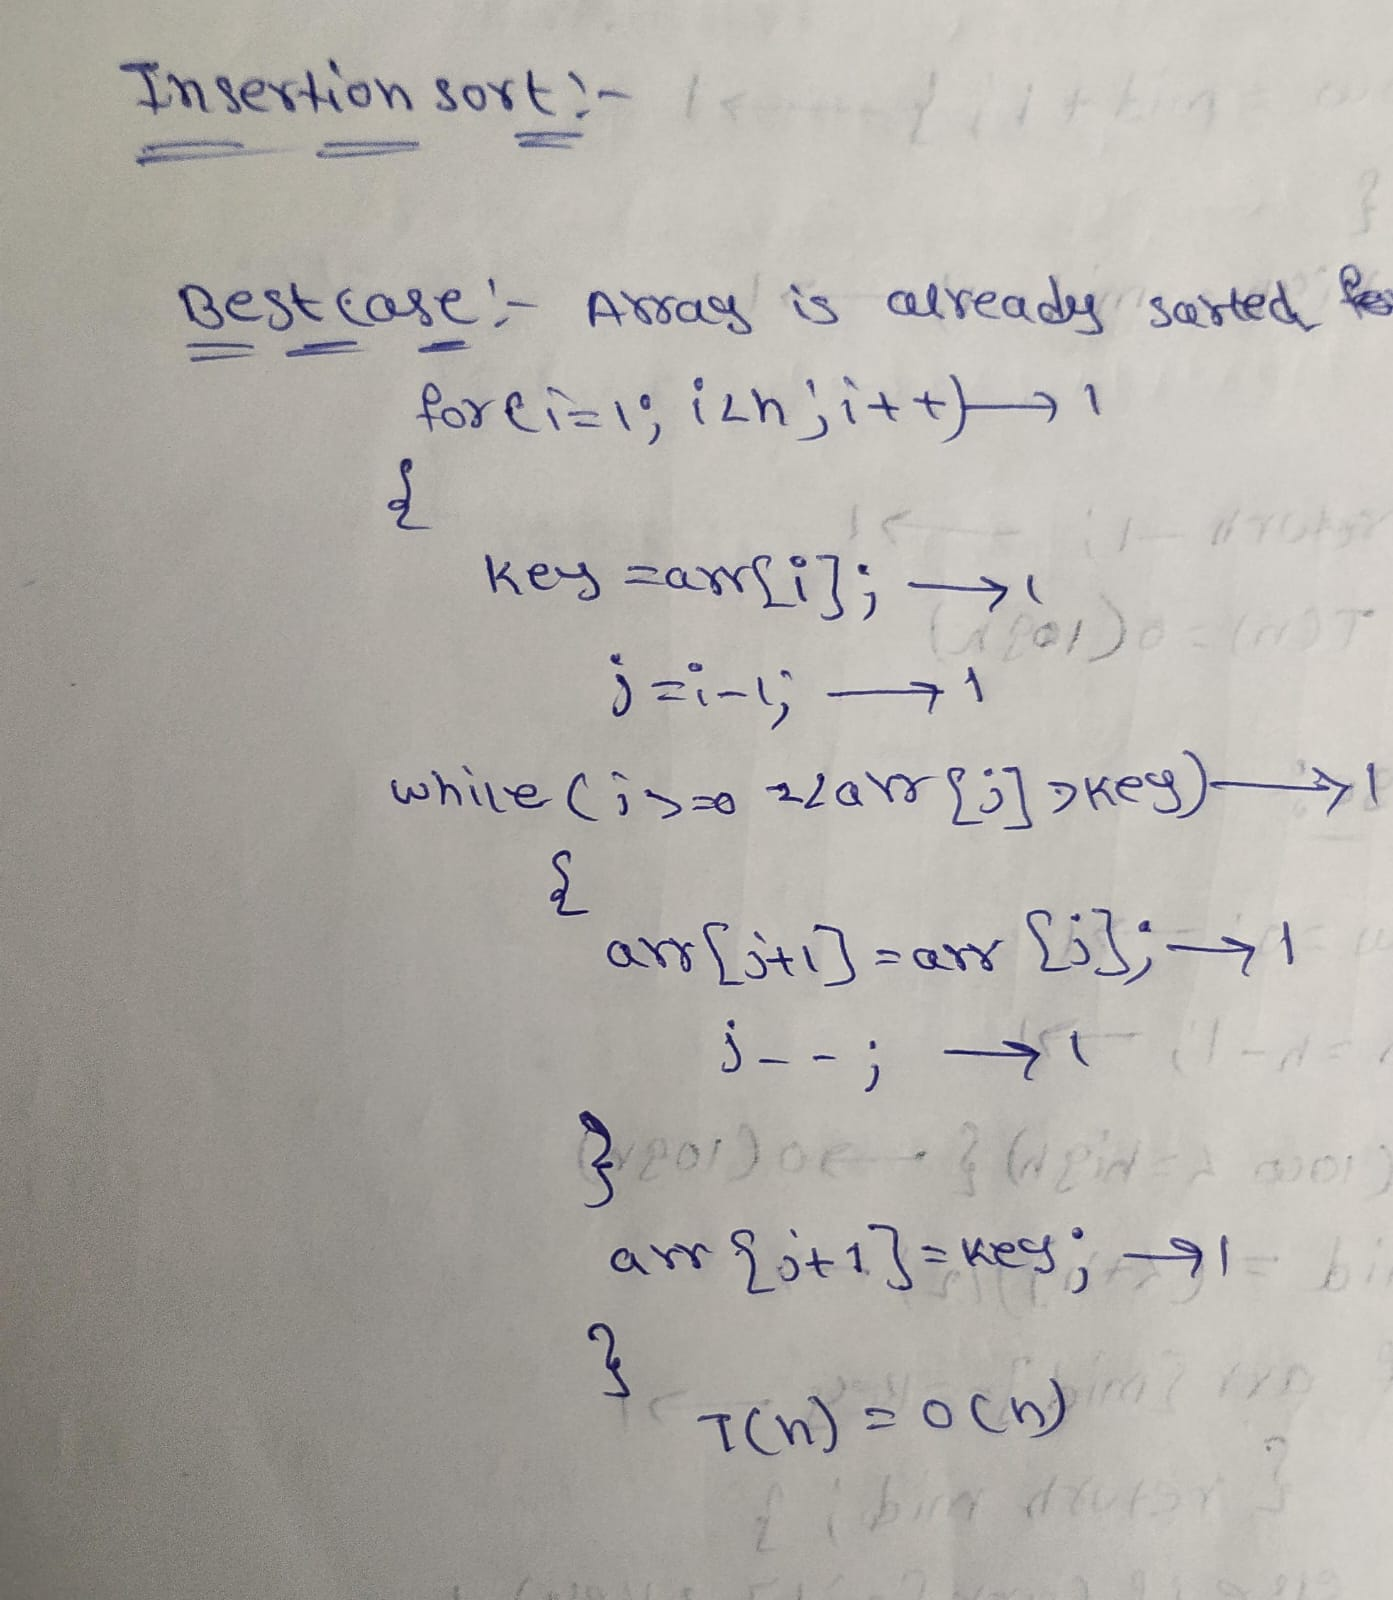 Insertion sort:-
Best case:- Array is already sorted
for(i=1; i<n; i++) → 1
{
key = arr[i]; → 1
j = i-1; → 1
while (j>=0 && arr[j] > key) → 1
{
arr[j+1] = arr[j]; → 1
j--; → 1
}
arr[j+1] = key; → 1
}
T(n) = O(n)